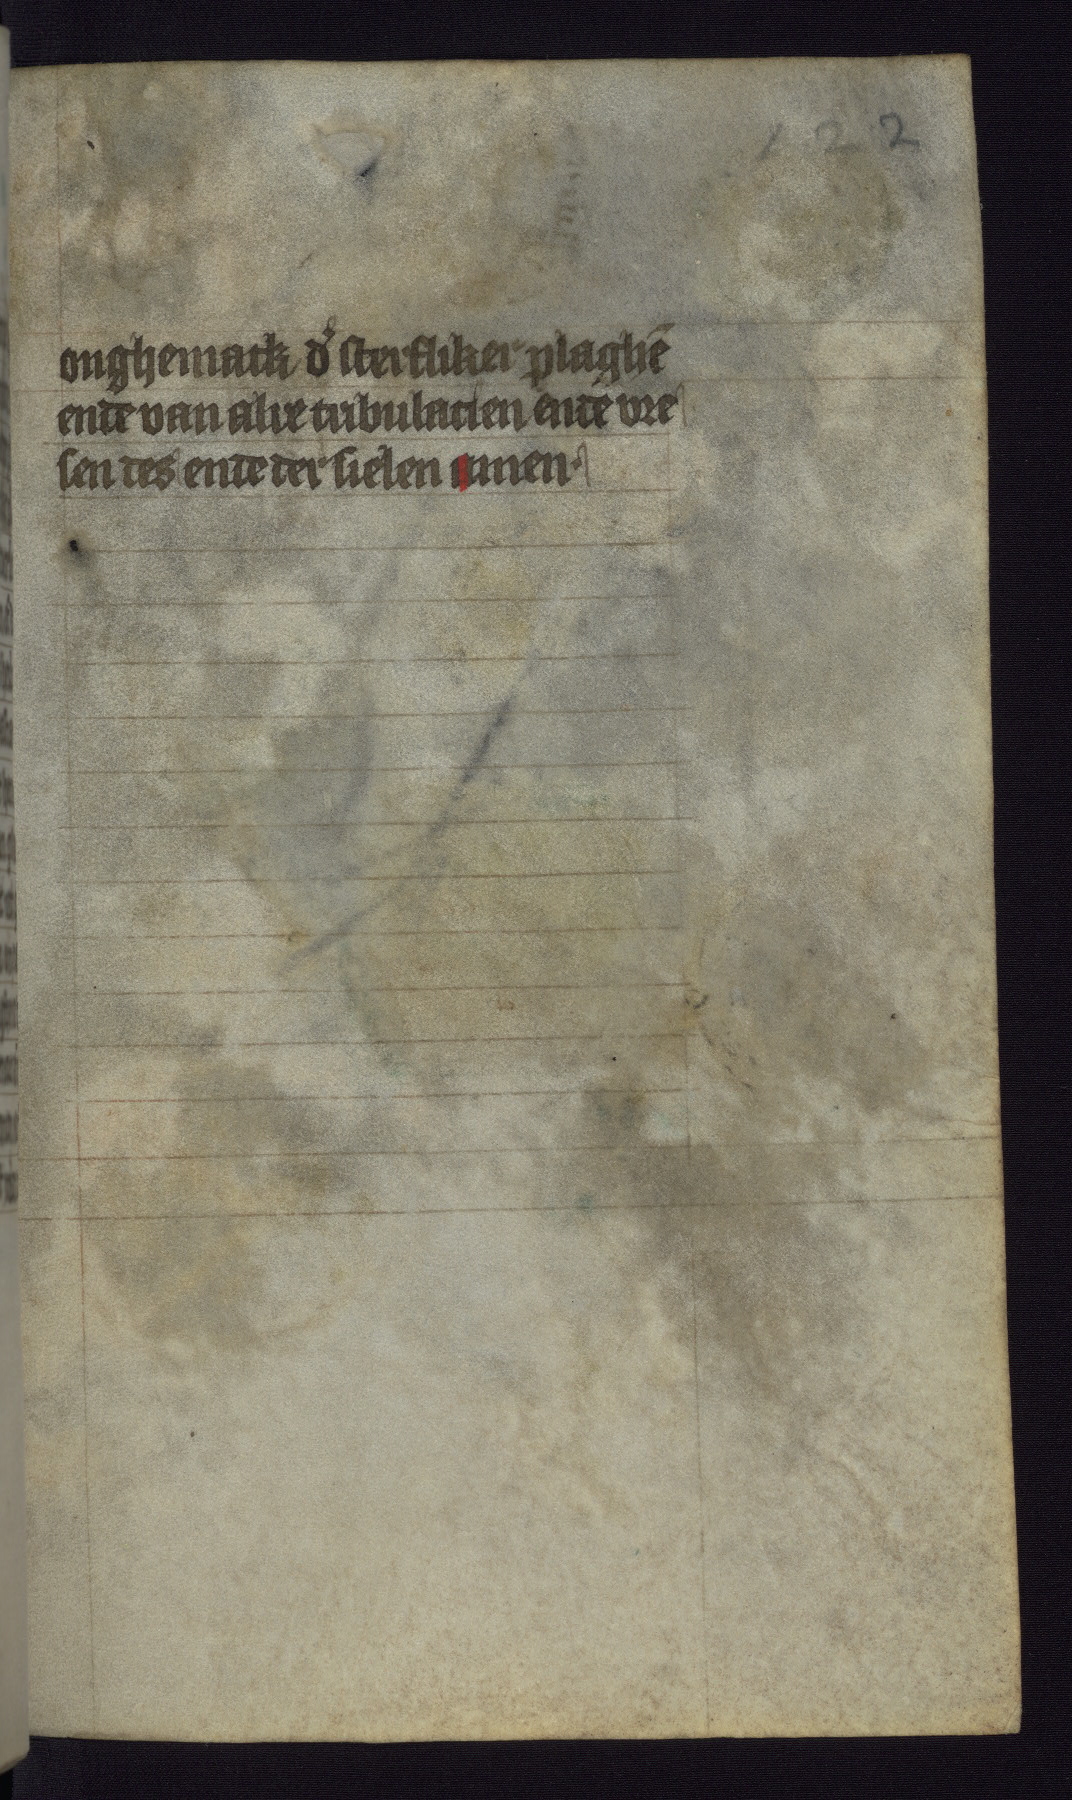 122
onghemack d' sterfliker plaghē
ende van alre tribulacien ende vre
sen des ende der sielen amen